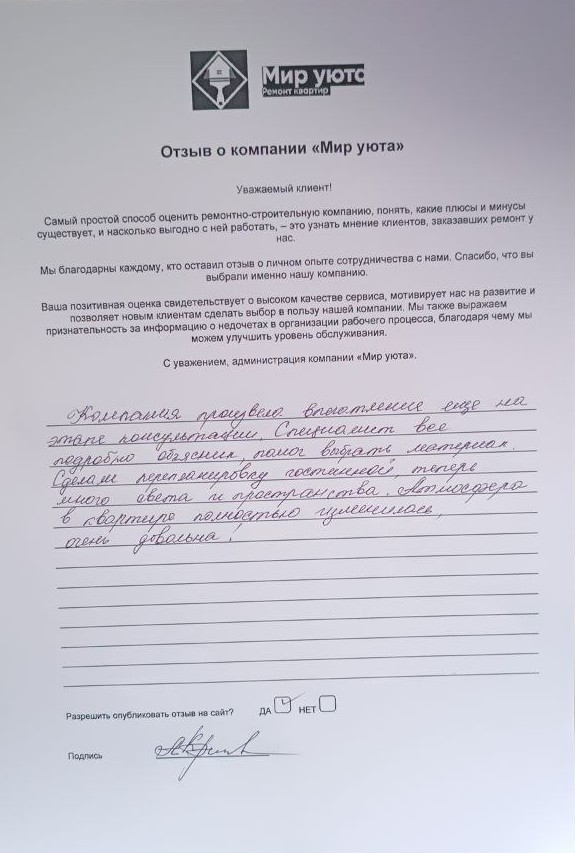 Мир уюта
Ремонт квартир
Отзыв о компании «Мир уюта»
Уважаемый клиент!
Самый простой способ оценить ремонтно-строительную компанию, понять, какие плюсы и минусы
существует, и насколько выгодно с ней работать, – это узнать мнение клиентов, заказавших ремонт у
нас.
Мы благодарны каждому, кто оставил отзыв о личном опыте сотрудничества с нами. Спасибо, что вы
выбрали именно нашу компанию.
Ваша позитивная оценка свидетельствует о высоком качестве сервиса, мотивирует нас на развитие и
позволяет новым клиентам сделать выбор в пользу нашей компании. Мы также выражаем
признательность за информацию о недочетах в организации рабочего процесса, благодаря чему мы
можем улучшить уровень обслуживания.
С уважением, администрация компании «Мир уюта».
Компания произвела впечатление еще на
этапе консультации. Специалист все
подробно объяснил, помог выбрать материал.
Сделали перепланировку гостинной, теперь
много света и пространства. Атмосфера
в квартире полностью изменилась,
очень довольна!
Разрешить опубликовать отзыв на сайт? ДА НЕТ
Подпись